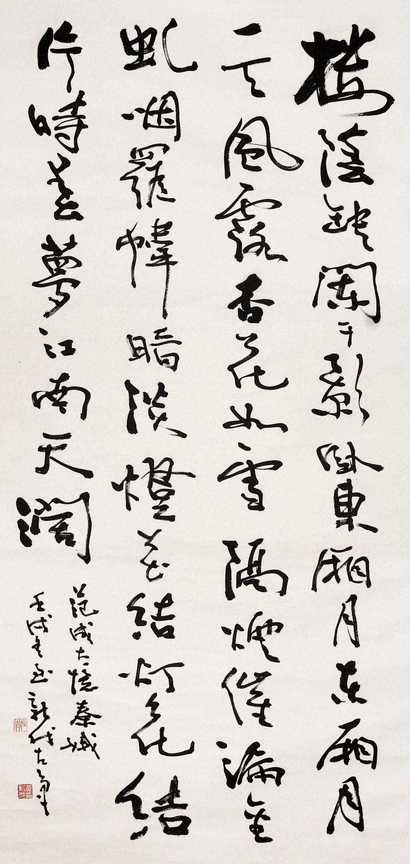 楼陰缺闌干影臥東厢月东厢月
一天風露杏花如雪隔煙催漏金
虬咽羅幃暗淡燈花結灯花結
片時春夢江南天濶
范成大憶秦娥
壬戌